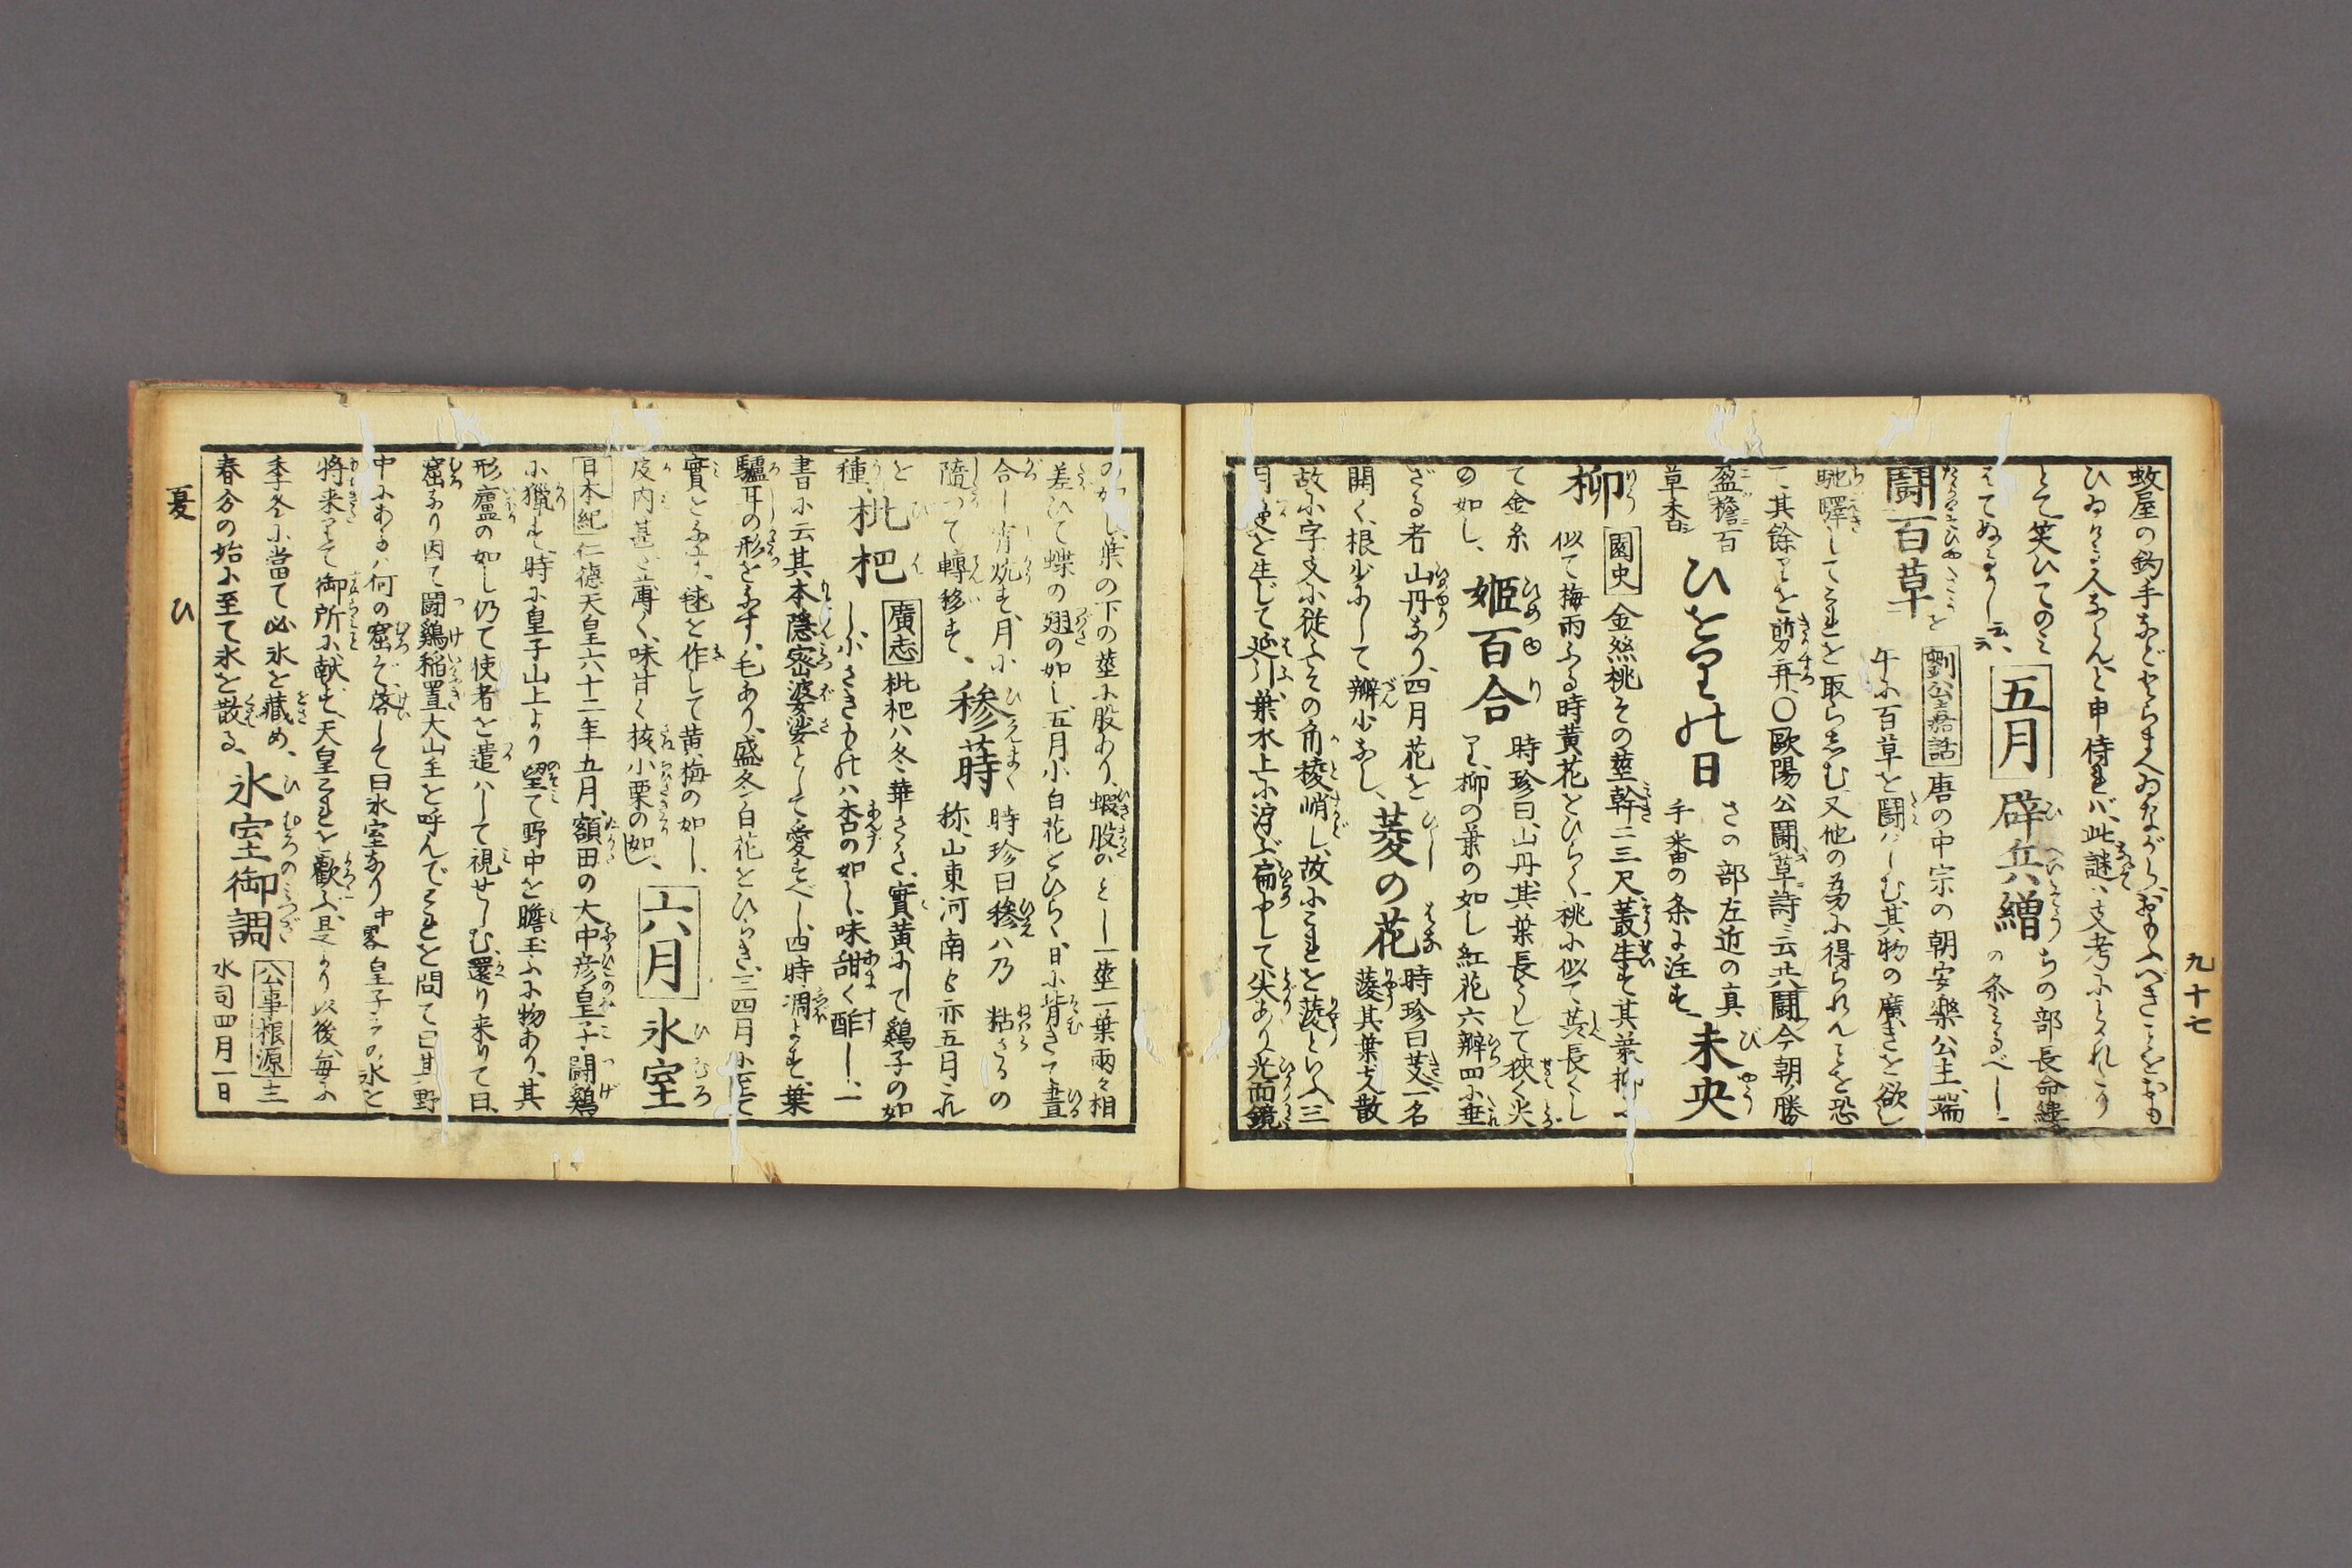 蚊屋の釣手などとらへゐながら、おもふべきことをおも
ひゐける人ならん、と申侍れバ、此謎ハ支考にとられたり
とて笑ひてのミ
五月
辟兵繒
ちの部長命縷
の条ミるべし
鬪百草
劉公嘉話
唐の中宗の朝安樂公主、端
午に百草を鬪ハしむ、其物の廣きを欲し
馳驛してこれを取らしむ、又他の為に得られんことを恐
て其餘りを剪弃、〇歐陽公鬪草詩ニ云共鬪今朝勝
盈襜百
草香
ひをりの日
さの部左近の真
手番の条に注す
未央
柳
園史
金絲桃その莖幹二三尺叢生す其葉柳に
似て梅雨ふる時黄花をひらく、桃に似て蕋長くし
て金糸
の如し、
姫百合
時珍曰、山丹、其葉長くして狹く尖
り、柳の葉の如し紅花六瓣四に垂
ざる者山丹なり、四月花を
開く、根少にして瓣少なし、
菱の花
時珍曰芰一名
菱其葉支散
故に字支に從ふその角稜峭し、故にこれを蔆といふ三
月蔓を生じて延引、葉水上に浮ぶ扁にして尖あり光面鏡
九十七
の如し、葉の下の莖に股あり、蝦股のごとし一莖一葉兩々相
差ひて蝶の翅の如し五月小白花をひらく、日に背きて晝
合し宵炕す、月に
隨つて轉移す、
穇蒔
時珍曰穇ハ乃粘さるの
称、山東河南も亦五月これ
を
種
枇杷
廣志
枇杷ハ冬華さき、實黄にして鷄子の如
し、小さきものハ杏の如し、味甜く酢し、一
書に云其本隱密婆娑として愛すべし、四時凋まず、葉
驢耳の形をなす、毛あり、盛冬白花をひらき、三四月に至て
實となる、毬を作して黄梅の如し、
皮肉甚ダ薄く、味甘く核小栗の如し、
六月
氷室
日本紀
仁德天皇六十二年五月、額田の大中彦皇子鬪鷄
に獵す、時に皇子山上より望て野中を瞻玉ふに物あり、其
形廬の如し仍て使者を遣ハして視せしむ、還り来りて曰、
窟なり因て鬪鷄稲置大山主を呼んでこれを問て曰其野
中にあるハ何の窟ぞ、啓して曰氷室なり中畧皇子その氷を
将来りて御所に献ず、天皇これを歡ぶ是より以後毎に
季冬に當て必氷を藏め、
春分の始に至て氷を散る、
氷室御調
公事根源
主
水司四月一日
夏
ひ